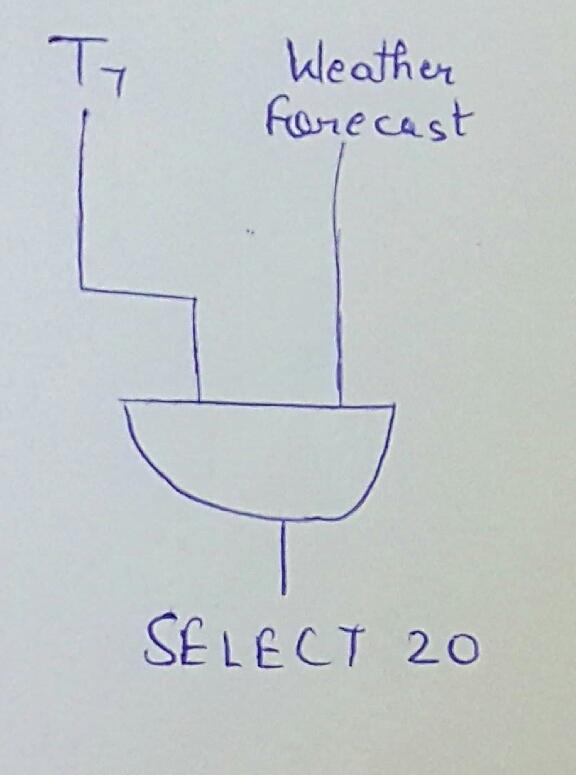 T7
Weather
Forecast
SELECT 20